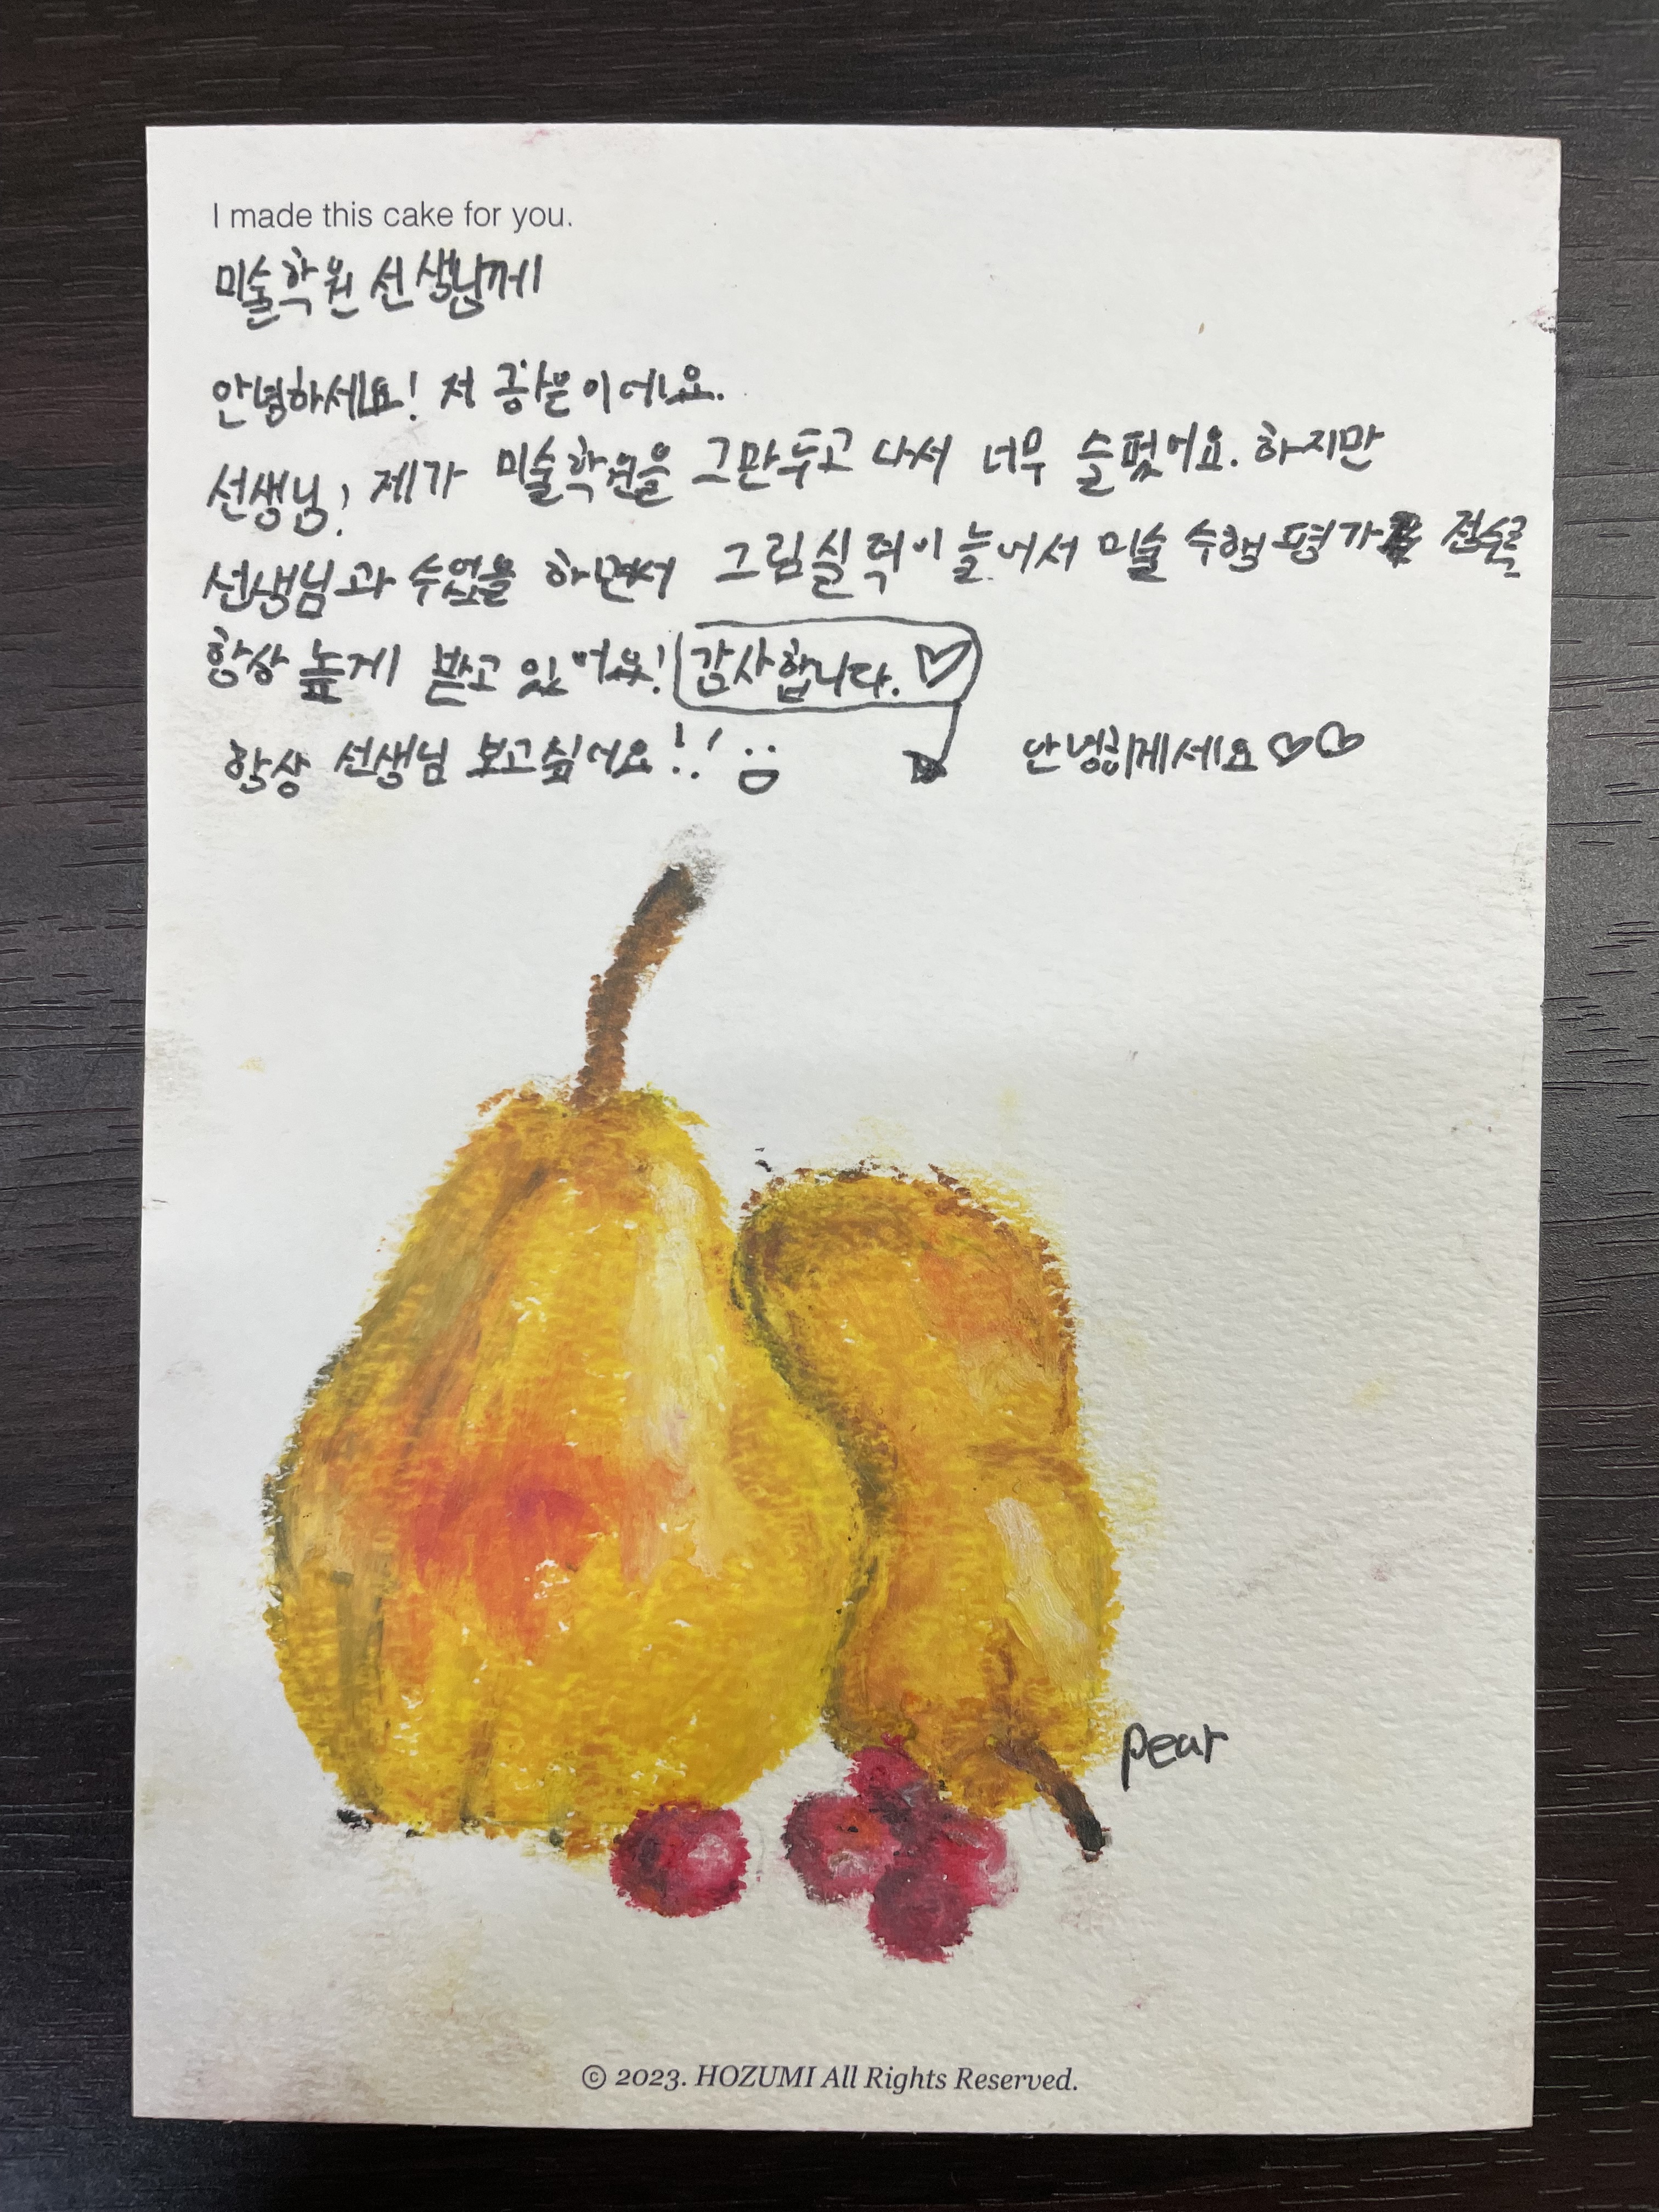 I made this cake for you.
미술학원 선생님께
안녕하세요! 저 이에요.
선생님, 제가 미술학원을 그만두고 나서 너무 슬펐어요. 하지만
선생님과 수업을 하면서 그림실력이 늘어서 미술 수행평가 점수를
항상 높게 받고 있어요! 감사합니다. ♡
항상 선생님 보고싶어요!! 안녕히계세요♡♡
pear
© 2023. HOZUMI All Rights Reserved.